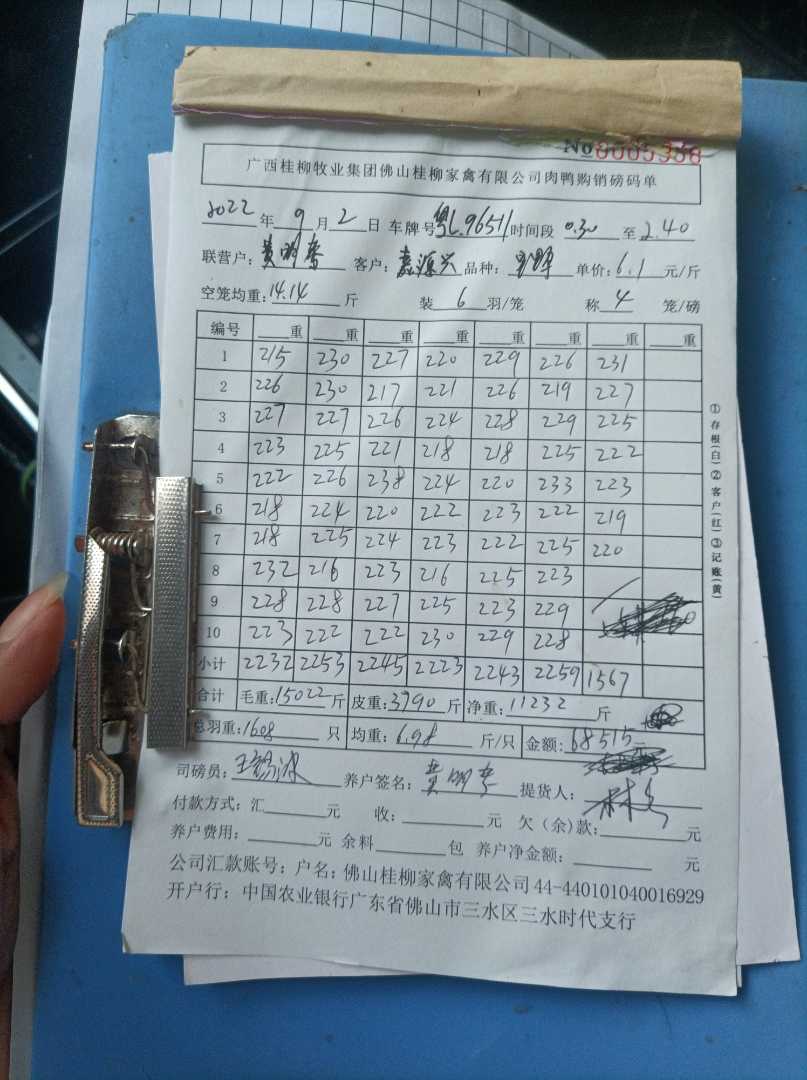 No 0005358
广西桂柳牧业集团佛山桂柳家禽有限公司肉鸭购销磅码单
2022年9月2日 车牌号粤L.96511时间段 0.30 至2.40
联营户:黄明 客户:嘉源兴 品种: 单价:6.1元/斤
空笼均重:14.14斤 装6羽/笼 称4笼/磅
编号 重 重 重 重 重 重 重 重
1 215 230 227 220 229 226 231
2 226 230 217 221 226 219 227
3 227 227 226 224 228 229 225
4 223 225 221 218 218 225 222
5 222 226 238 224 220 233 223
6 218 224 220 222 223 222 219
7 218 225 224 223 222 225 220
8 232 216 223 216 225 223
9 228 228 227 225 223 229
10 223 222 222 230 229 228
小计 2232 2253 2245 2223 2243 2259 1567
合计 毛重:15022斤 皮重:3790斤 净重:11232斤
总羽重:1608只 均重:6.98斤/只 金额:68515元
司磅员: 养户签名:黄明 提货人:
付款方式:汇 元 收: 元 欠(余)款: 元
养户费用: 元 余料 包 养户净金额: 元
公司汇款账号:户名:佛山桂柳家禽有限公司44-440101040016929
开户行:中国农业银行广东省佛山市三水区三水时代支行
①存根(白)②客户(红)③记账(黄)